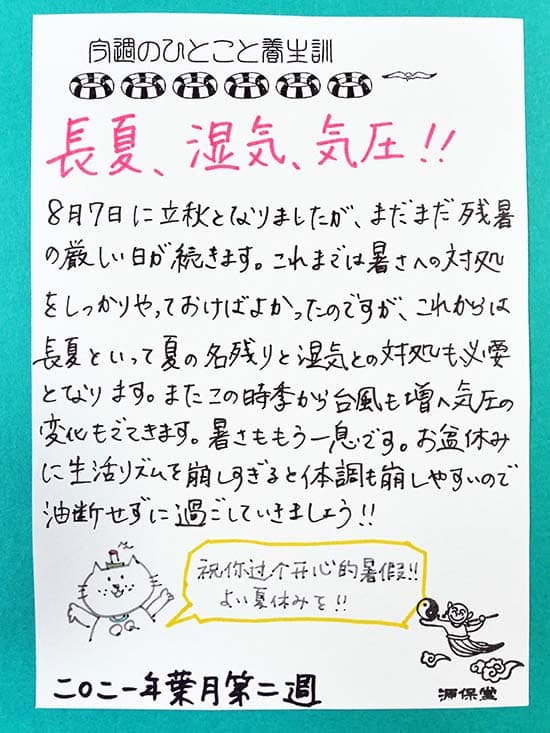 今週のひとこと養生訓
長夏、湿気、気圧!!
8月7日に立秋となりましたが、まだまだ残暑
の厳しい日が続きます。これまでは暑さへの対処
をしっかりやっておけばよかったのですが、これからは
長夏といって夏の名残りと湿気との対処も必要
となります。またこの時季から台風も増へ気圧の
変化もでてきます。暑さももう一息です。お盆休み
に生活リズムを崩しすぎると体調も崩しやすいので
油断せずに過ごしていきましょう!!
祝你过个开心的暑假!!
よい夏休みを!!
二〇二一年葉月第二週
源保堂